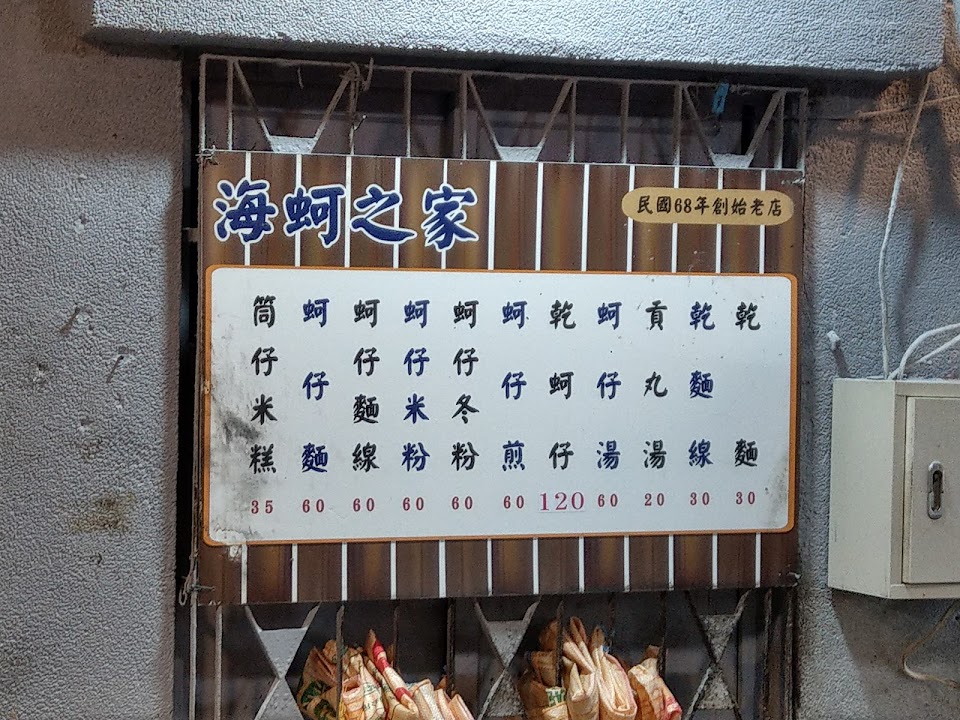 海蚵之家
民國68年創始老店
乾麵 30
乾麵線 30
貢丸湯 20
蚵仔湯 60
乾蚵仔 120
蚵仔煎 60
蚵仔冬粉 60
蚵仔米粉 60
蚵仔麵線 60
蚵仔麵 60
筒仔米糕 35